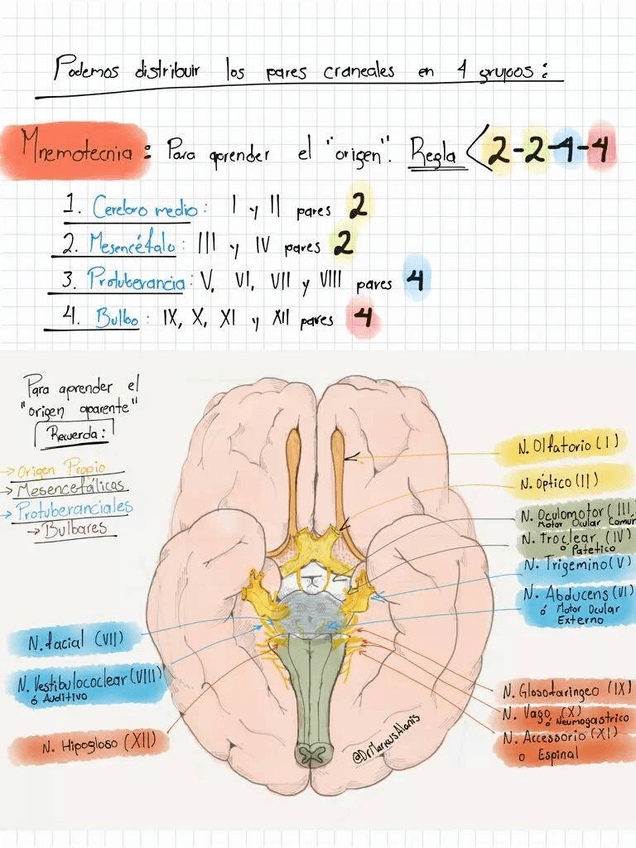 Podemos distribuir los pares craneales en 4 grupos:
Mnemotecnia: Para aprender el "origen". Regla < 2-2-4-4
1. Cerebro medio: I y II pares 2
2. Mesencéfalo: III y IV pares 2
3. Protuberancia: V, VI, VII y VIII pares 4
4. Bulbo: IX, X, XI y XII pares 4
Para aprender el
"origen aparente"
Recuerda:
→ Origen Propio
→ Mesencefálicos
→ Protuberanciales
→ Bulbares
N. Olfatorio (I)
N. Óptico (II)
N. Oculomotor (III
Motor Ocular Comun
N. Troclear (IV)
o Patetico
N. Trigemino (V)
N. Abducens (VI)
ó Motor Ocular
Externo
N. facial (VII)
N. Vestibulococlear (VIII)
ó Auditivo
N. Hipogloso (XII)
N. Glosofaringeo (IX)
N. Vago (X)
o Neumogastrico
N. Accessorio (XI)
o Espinal
@DrMarcusAlanis